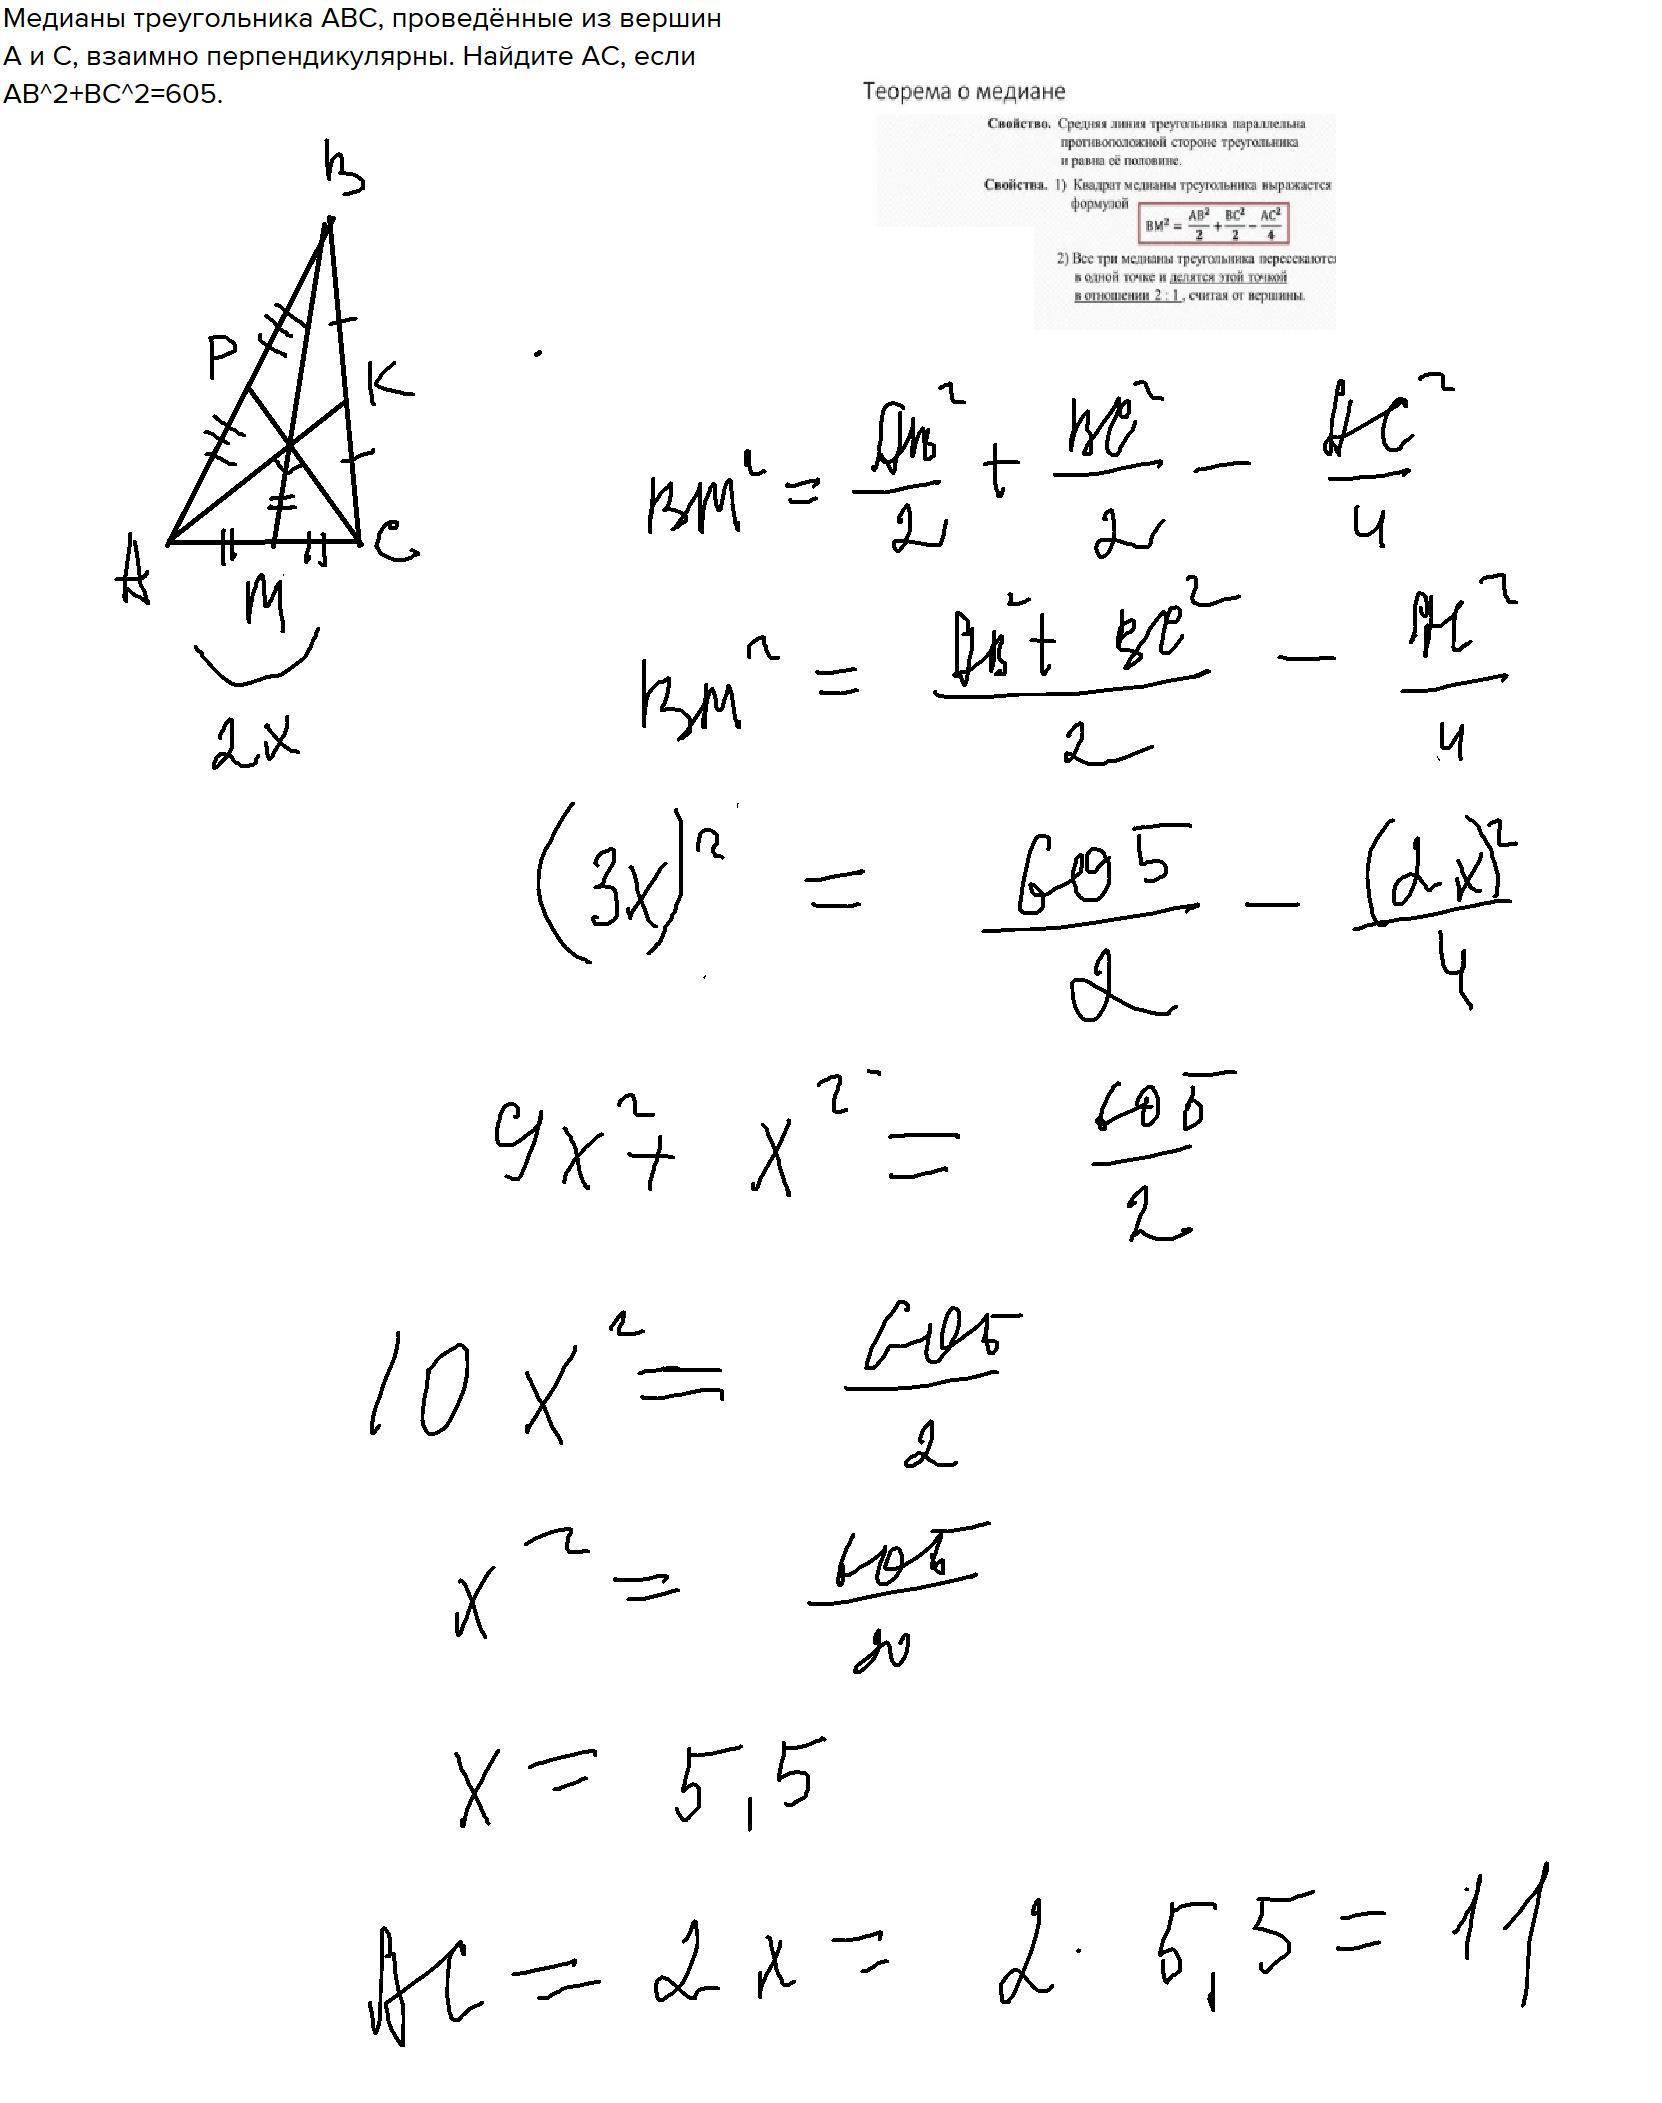 Медианы треугольника ABC, проведённые из вершин
A и C, взаимно перпендикулярны. Найдите AC, если
AB^2+BC^2=605.
Теорема о медиане
Свойство. Средняя линия треугольника параллельна
противоположной стороне треугольника
и равна её половине.
Свойства. 1) Квадрат медианы треугольника выражается
формулой
BM² = AB²/2 + BC²/2 − AC²/4
2) Все три медианы треугольника пересекаются
в одной точке и делятся этой точкой
в отношении 2 : 1, считая от вершины.
B
P
K
A
M
C
2x
BM² = AB²/2 + BC²/2 − AC²/4
BM² = (AB² + BC²)/2 − AC²/4
(3x)² = 605/2 − (2x)²/4
9x² + x² = 605/2
10x² = 605/2
x² = 605/20
x = 5,5
AC = 2x = 2 · 5,5 = 11